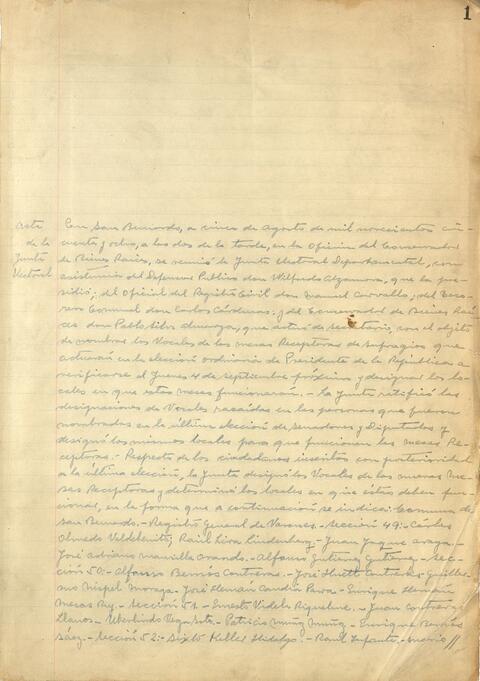 1
Acta
de la
Junta
Electoral
En San Bernardo, a cinco de Agosto de mil novecientos cin-
cuenta y ocho, a las dos de la tarde, en la Oficina del Conservador
de Bienes Raíces, se reunió la Junta Electoral Departamental, con
asistencia del Defensor Público don Wilfredo Alzamora, que la pre-
sidió; del Oficial del Registro Civil don Manuel Carvallo; del Teso-
rero Comunal don Carlos Cárdenas; y del Conservador de Bienes Raí-
ces don Pablo Silva, que actuó de secretario, con el objeto
de nombrar los Vocales de las mesas Receptoras de sufragios que
actuarán en la elección ordinaria de Presidente de la República a
verificarse el jueves 4 de septiembre próximo y designar los lo-
cales en que estas mesas funcionarán.- La Junta ratificó las
designaciones de Vocales recaídas en las personas que fueron
nombradas en la última elección de Senadores y Diputados y
designó los mismos locales para que funcionen las mesas Re-
ceptoras.- Respecto de los ciudadanos inscritos con posterioridad
a la última elección, la Junta designó los Vocales de las nuevas Me-
sas Receptoras y determinó los locales en que éstas deben fun-
cionar, en la forma que a continuación se indica: Comuna de
San Bernardo.- Registro General de Varones.- Sección 49:- Carlos
Olmedo Valdebenito; Raúl Lira Lindenberg.- Juan Jaque Araya.-
José Adriano Mancilla Ovando.- Alfonso Gutiérrez Gutiérrez.- Sec-
ción 50:- Alfonso Berríos Contreras.- José Contreras.- Guiller-
mo Mispel Moraga.- José Hernán Candia Parra.- Enrique Hernán
Mesas Rey.- Sección 51.- Ernesto Videla Riquelme.- Juan Contreras
Llanos.- Uberlindo Vega Soto.- Patricio Muñoz Muñoz.- Enrique Berríos
Sáez.- Sección 52:- Sixto Keller Hidalgo.- Raúl Infante.- Mario //